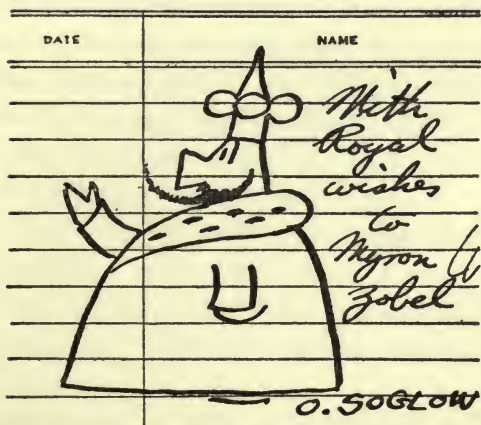 DATE NAME
With
Royal
wishes
to
Myron
Zobel
O. SOGLOW